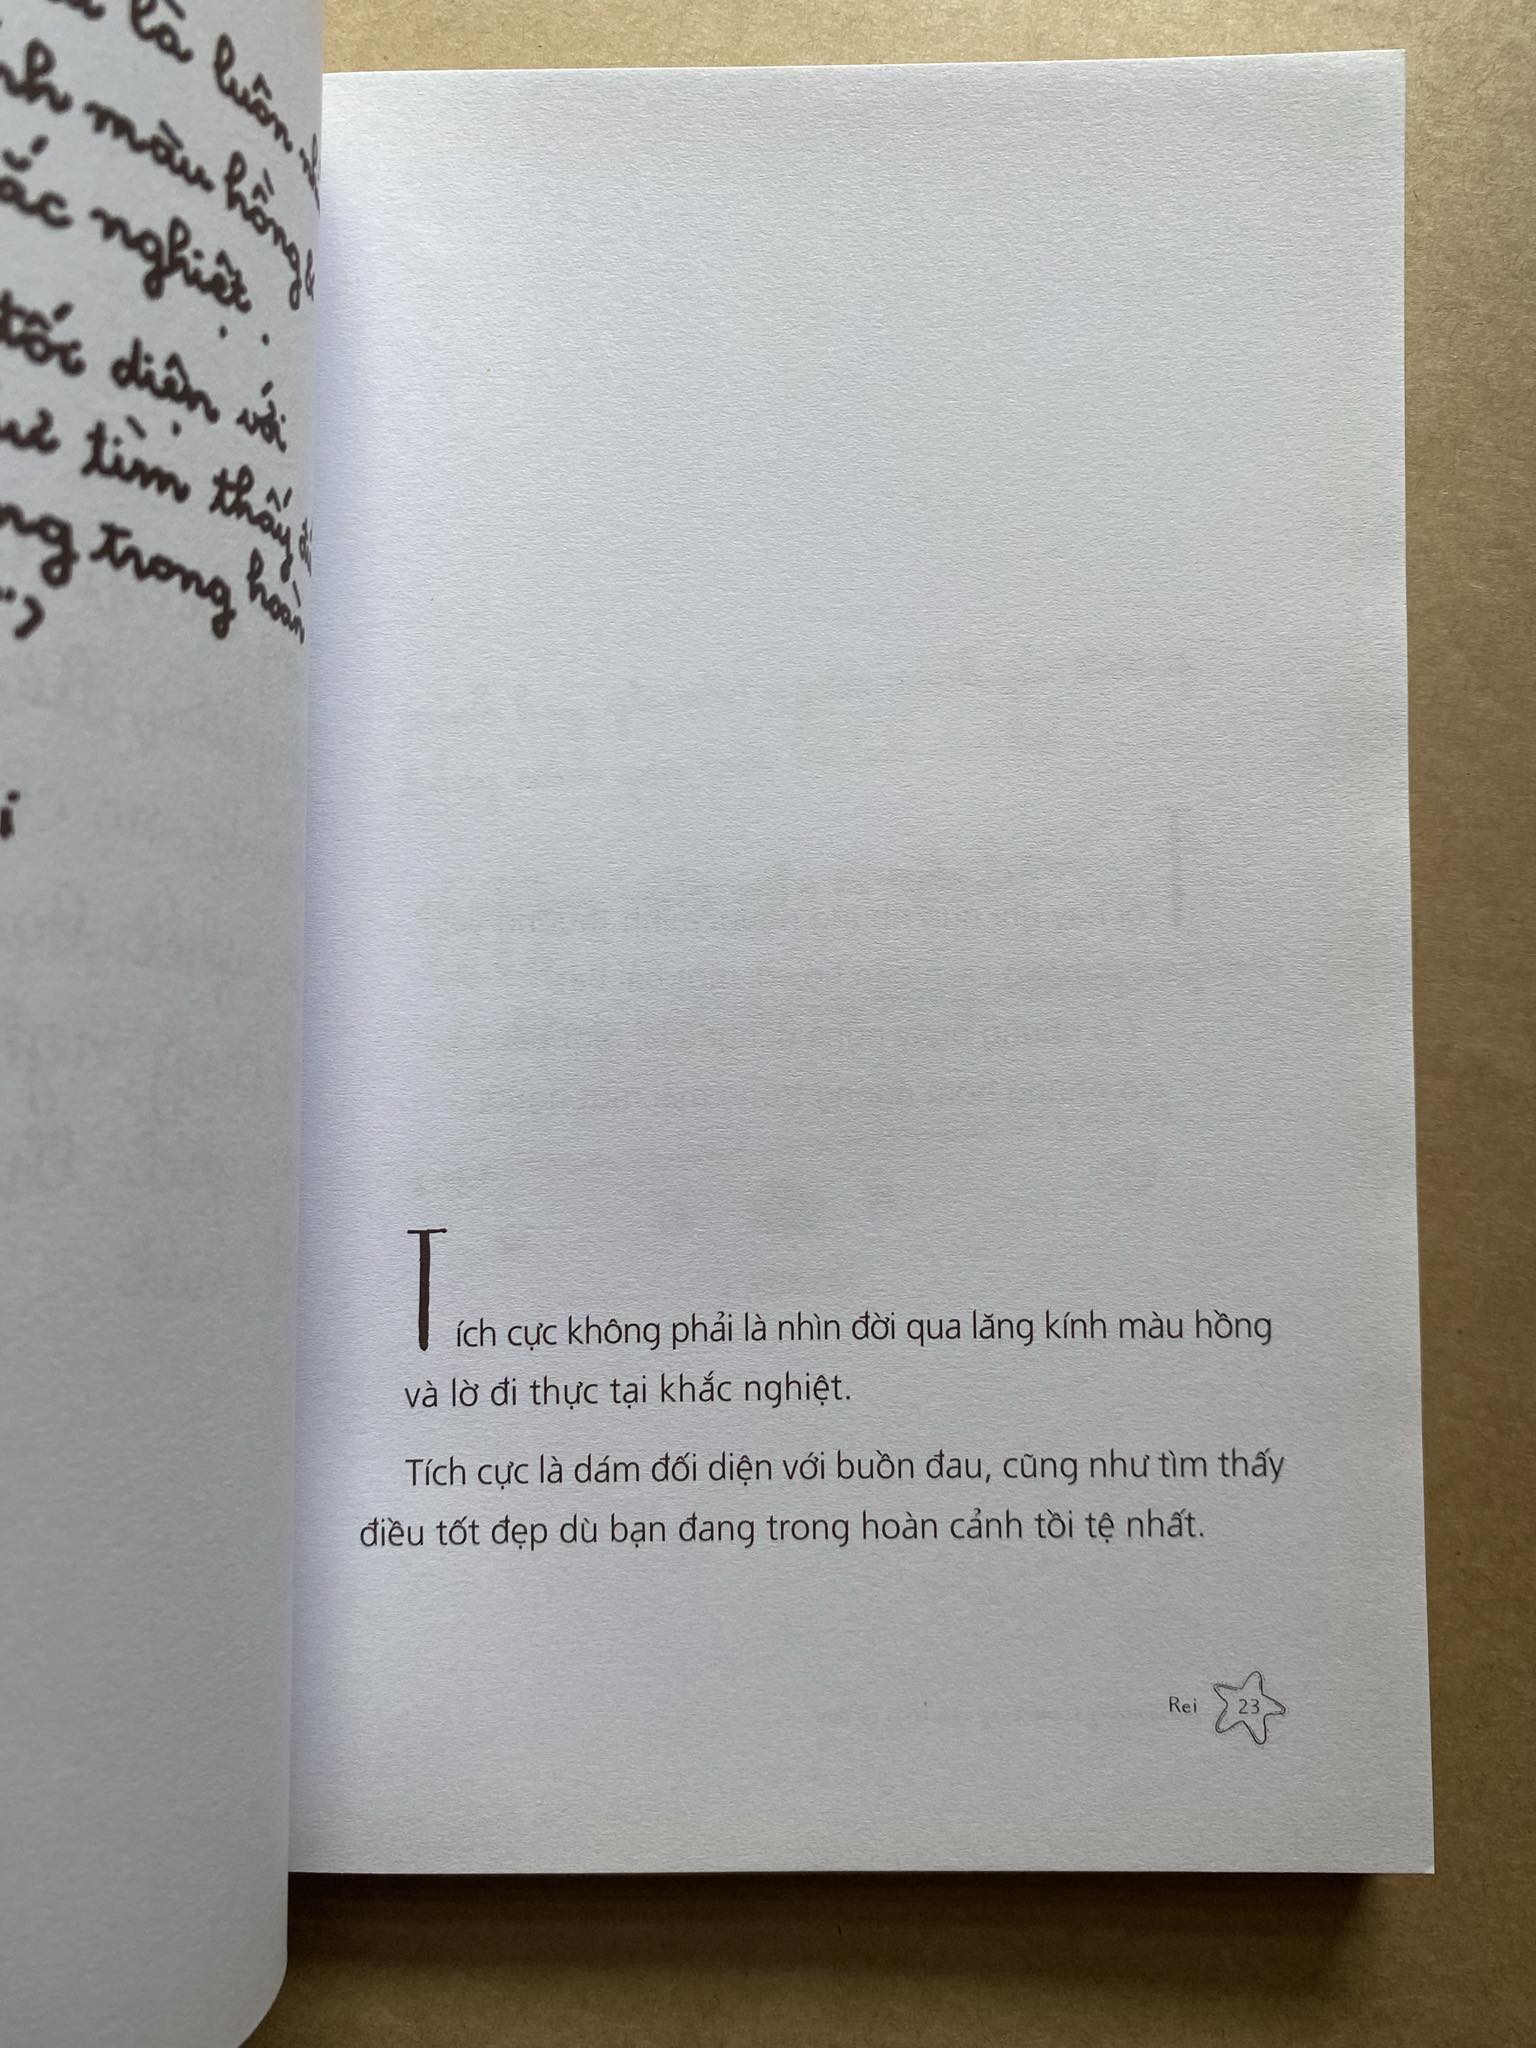 là luôn
màu hồng
nghiệt.
diện với
tìm thấy
trong hoàn
Tích cực không phải là nhìn đời qua lăng kính màu hồng
và lờ đi thực tại khắc nghiệt.
Tích cực là dám đối diện với buồn đau, cũng như tìm thấy
điều tốt đẹp dù bạn đang trong hoàn cảnh tồi tệ nhất.
Rei 23